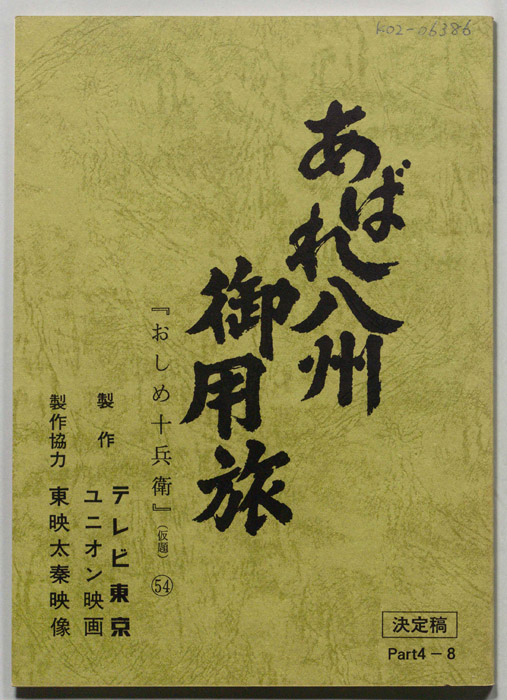 K02-06386
あばれ八州
御用旅
『おしめ十兵衛』(仮題) 54
製作 テレビ東京
ユニオン映画
製作協力 東映太秦映像
決定稿
Part4－8